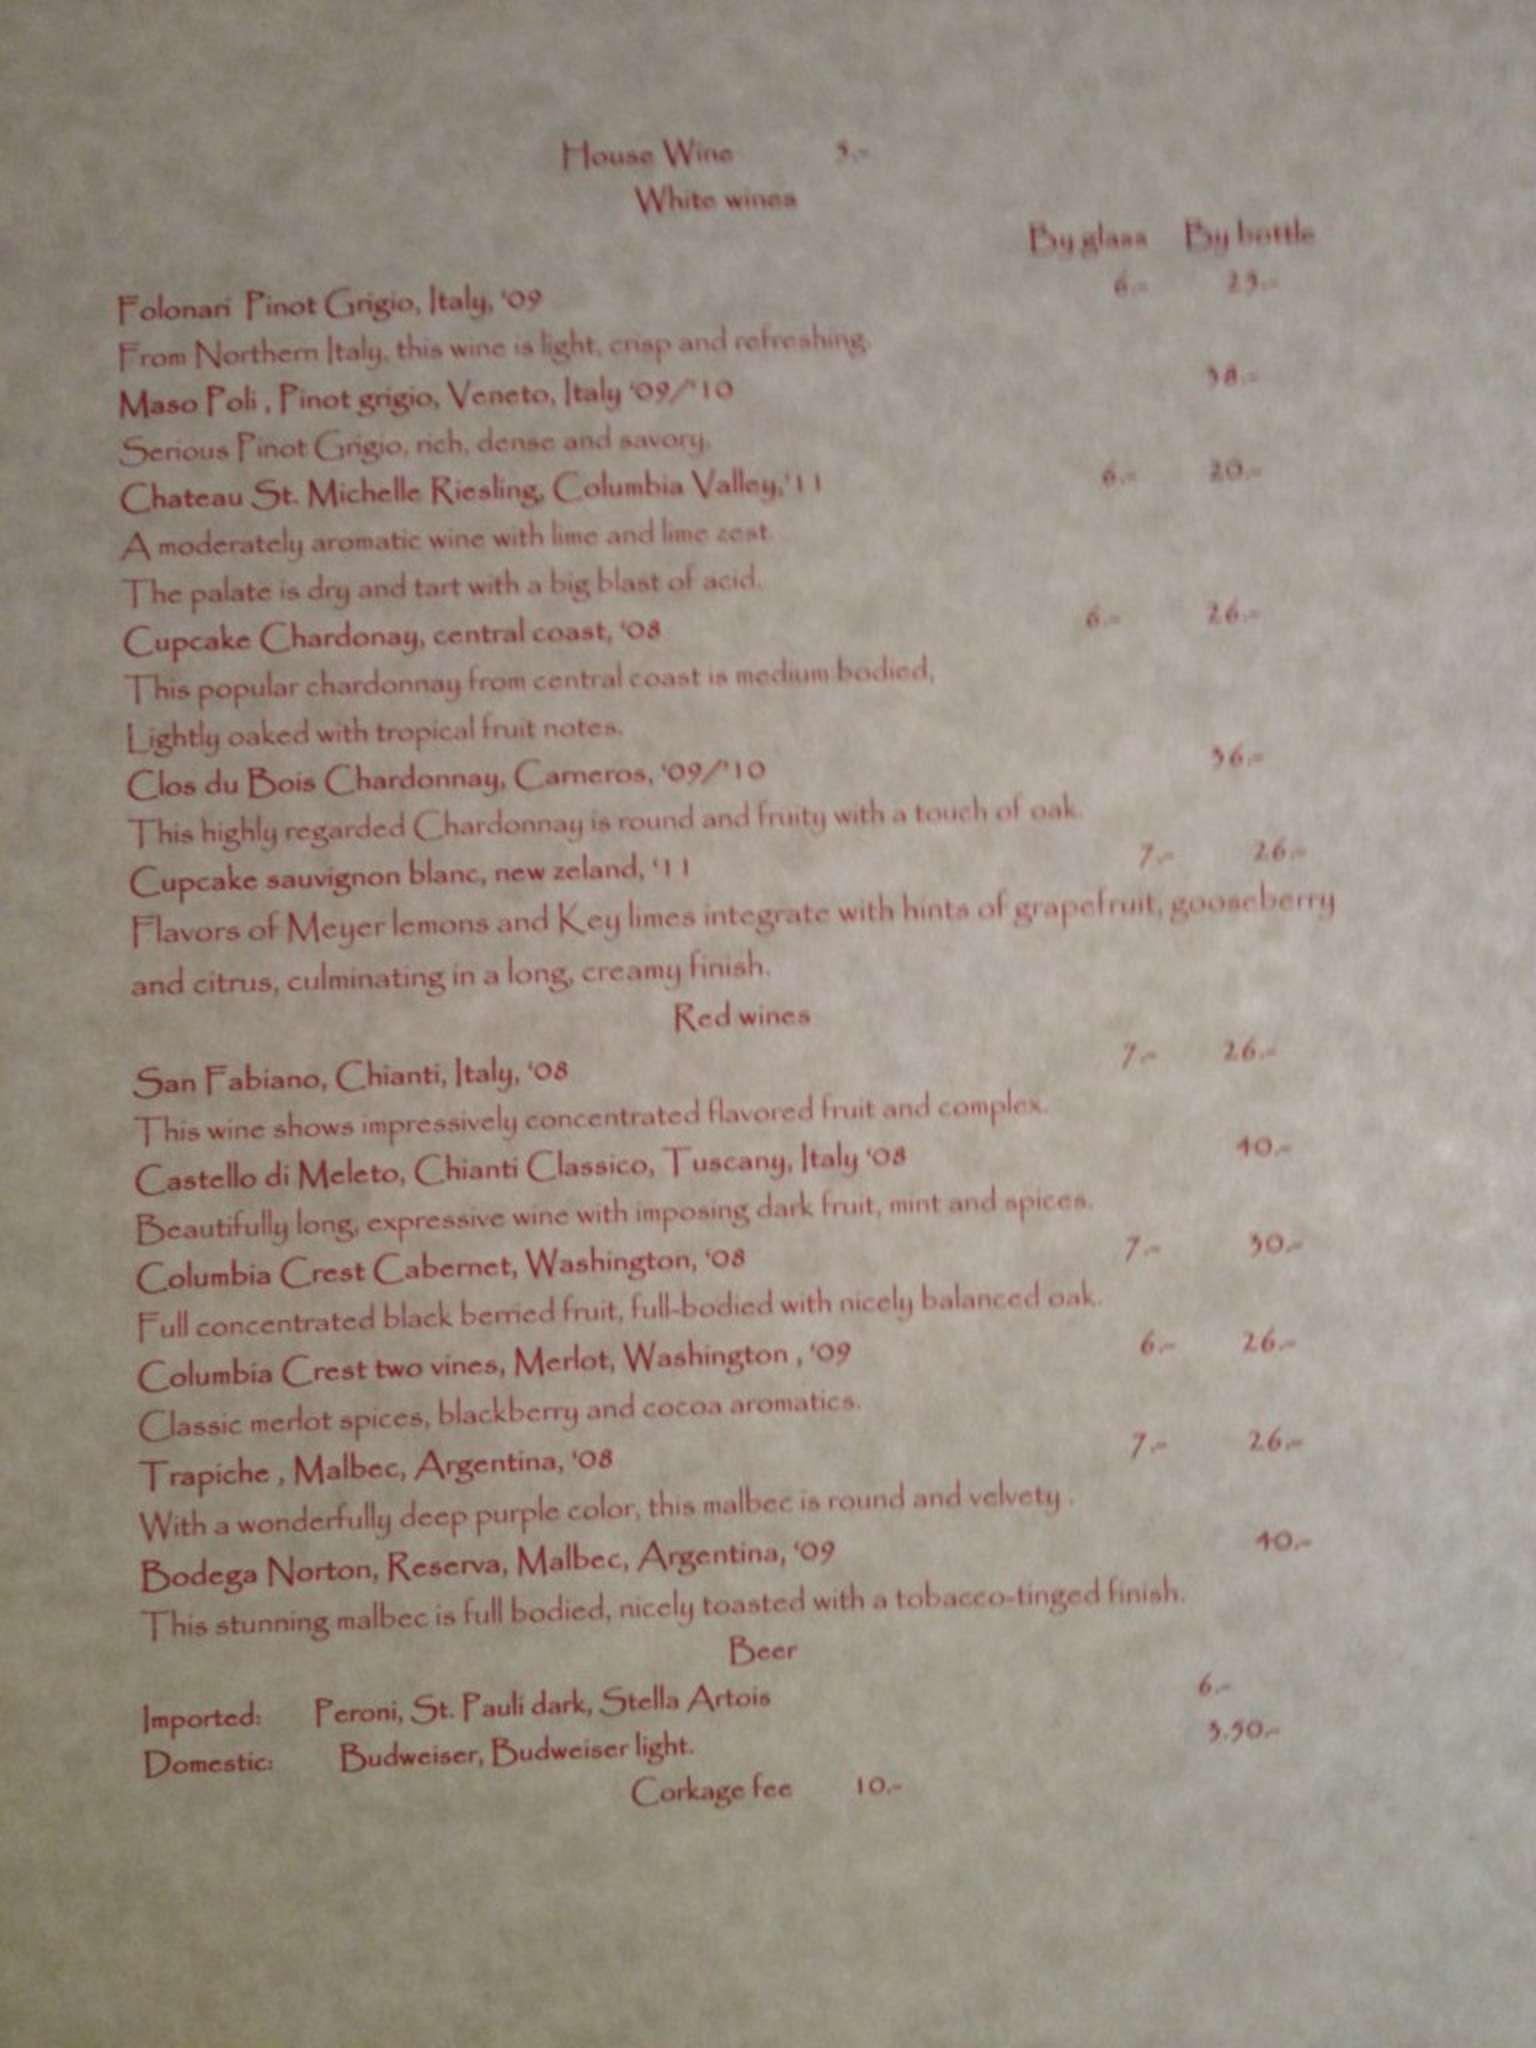 House Wine 5.-
White wines
By glass By bottle
Folonari Pinot Grigio, Italy, '09 6.- 23.-
From Northern Italy, this wine is light, crisp and refreshing.
Maso Poli , Pinot grigio, Veneto, Italy '09/'10 38.-
Serious Pinot Grigio, rich, dense and savory.
Chateau St. Michelle Riesling, Columbia Valley,'11 6.- 20.-
A moderately aromatic wine with lime and lime zest.
The palate is dry and tart with a big blast of acid.
Cupcake Chardonay, central coast, '08 6.- 26.-
This popular chardonnay from central coast is medium bodied,
Lightly oaked with tropical fruit notes.
Clos du Bois Chardonnay, Carneros, '09/'10 36.-
This highly regarded Chardonnay is round and fruity with a touch of oak.
Cupcake sauvignon blanc, new zeland, '11 7.- 26.-
Flavors of Meyer lemons and Key limes integrate with hints of grapefruit, gooseberry
and citrus, culminating in a long, creamy finish.
Red wines
San Fabiano, Chianti, Italy, '08 7.- 26.-
This wine shows impressively concentrated flavored fruit and complex.
Castello di Meleto, Chianti Classico, Tuscany, Italy '08 40.-
Beautifully long, expressive wine with imposing dark fruit, mint and spices.
Columbia Crest Cabernet, Washington, '08 7.- 30.-
Full concentrated black berried fruit, full-bodied with nicely balanced oak.
Columbia Crest two vines, Merlot, Washington , '09 6.- 26.-
Classic merlot spices, blackberry and cocoa aromatics.
Trapiche , Malbec, Argentina, '08 7.- 26.-
With a wonderfully deep purple color, this malbec is round and velvety .
Bodega Norton, Reserva, Malbec, Argentina, '09 40.-
This stunning malbec is full bodied, nicely toasted with a tobacco-tinged finish.
Beer
Imported: Peroni, St. Pauli dark, Stella Artois 6.-
Domestic: Budweiser, Budweiser light. 3.50.-
Corkage fee 10.-